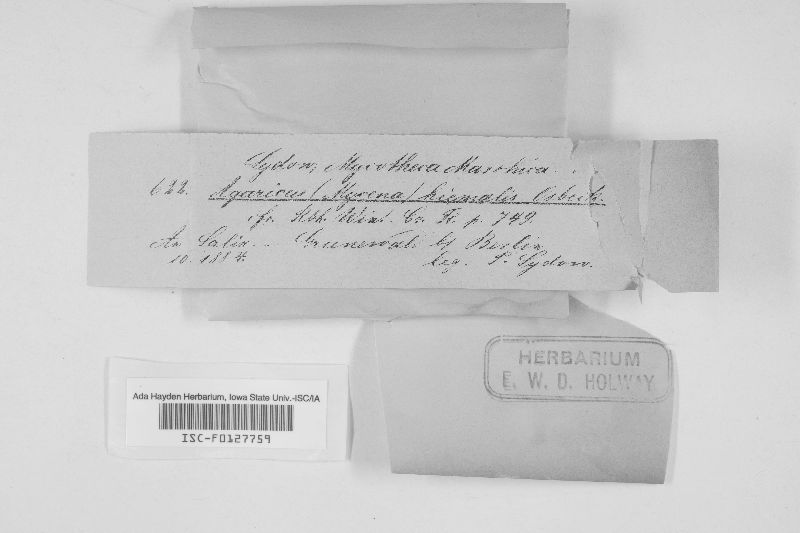 Sydow, Mycotheca Marchica.
622. Agaricus (Mycena) hiemalis Osbeck.
cfr. Rbh. Wint. Cr. Fl. p. 749.
An Salix. Grunewald bf Berlin
10. 1884. leg. P. Sydow.
HERBARIUM
E. W. D. HOLWAY
Ada Hayden Herbarium, Iowa State Univ.-ISC/IA
ISC-F0127759